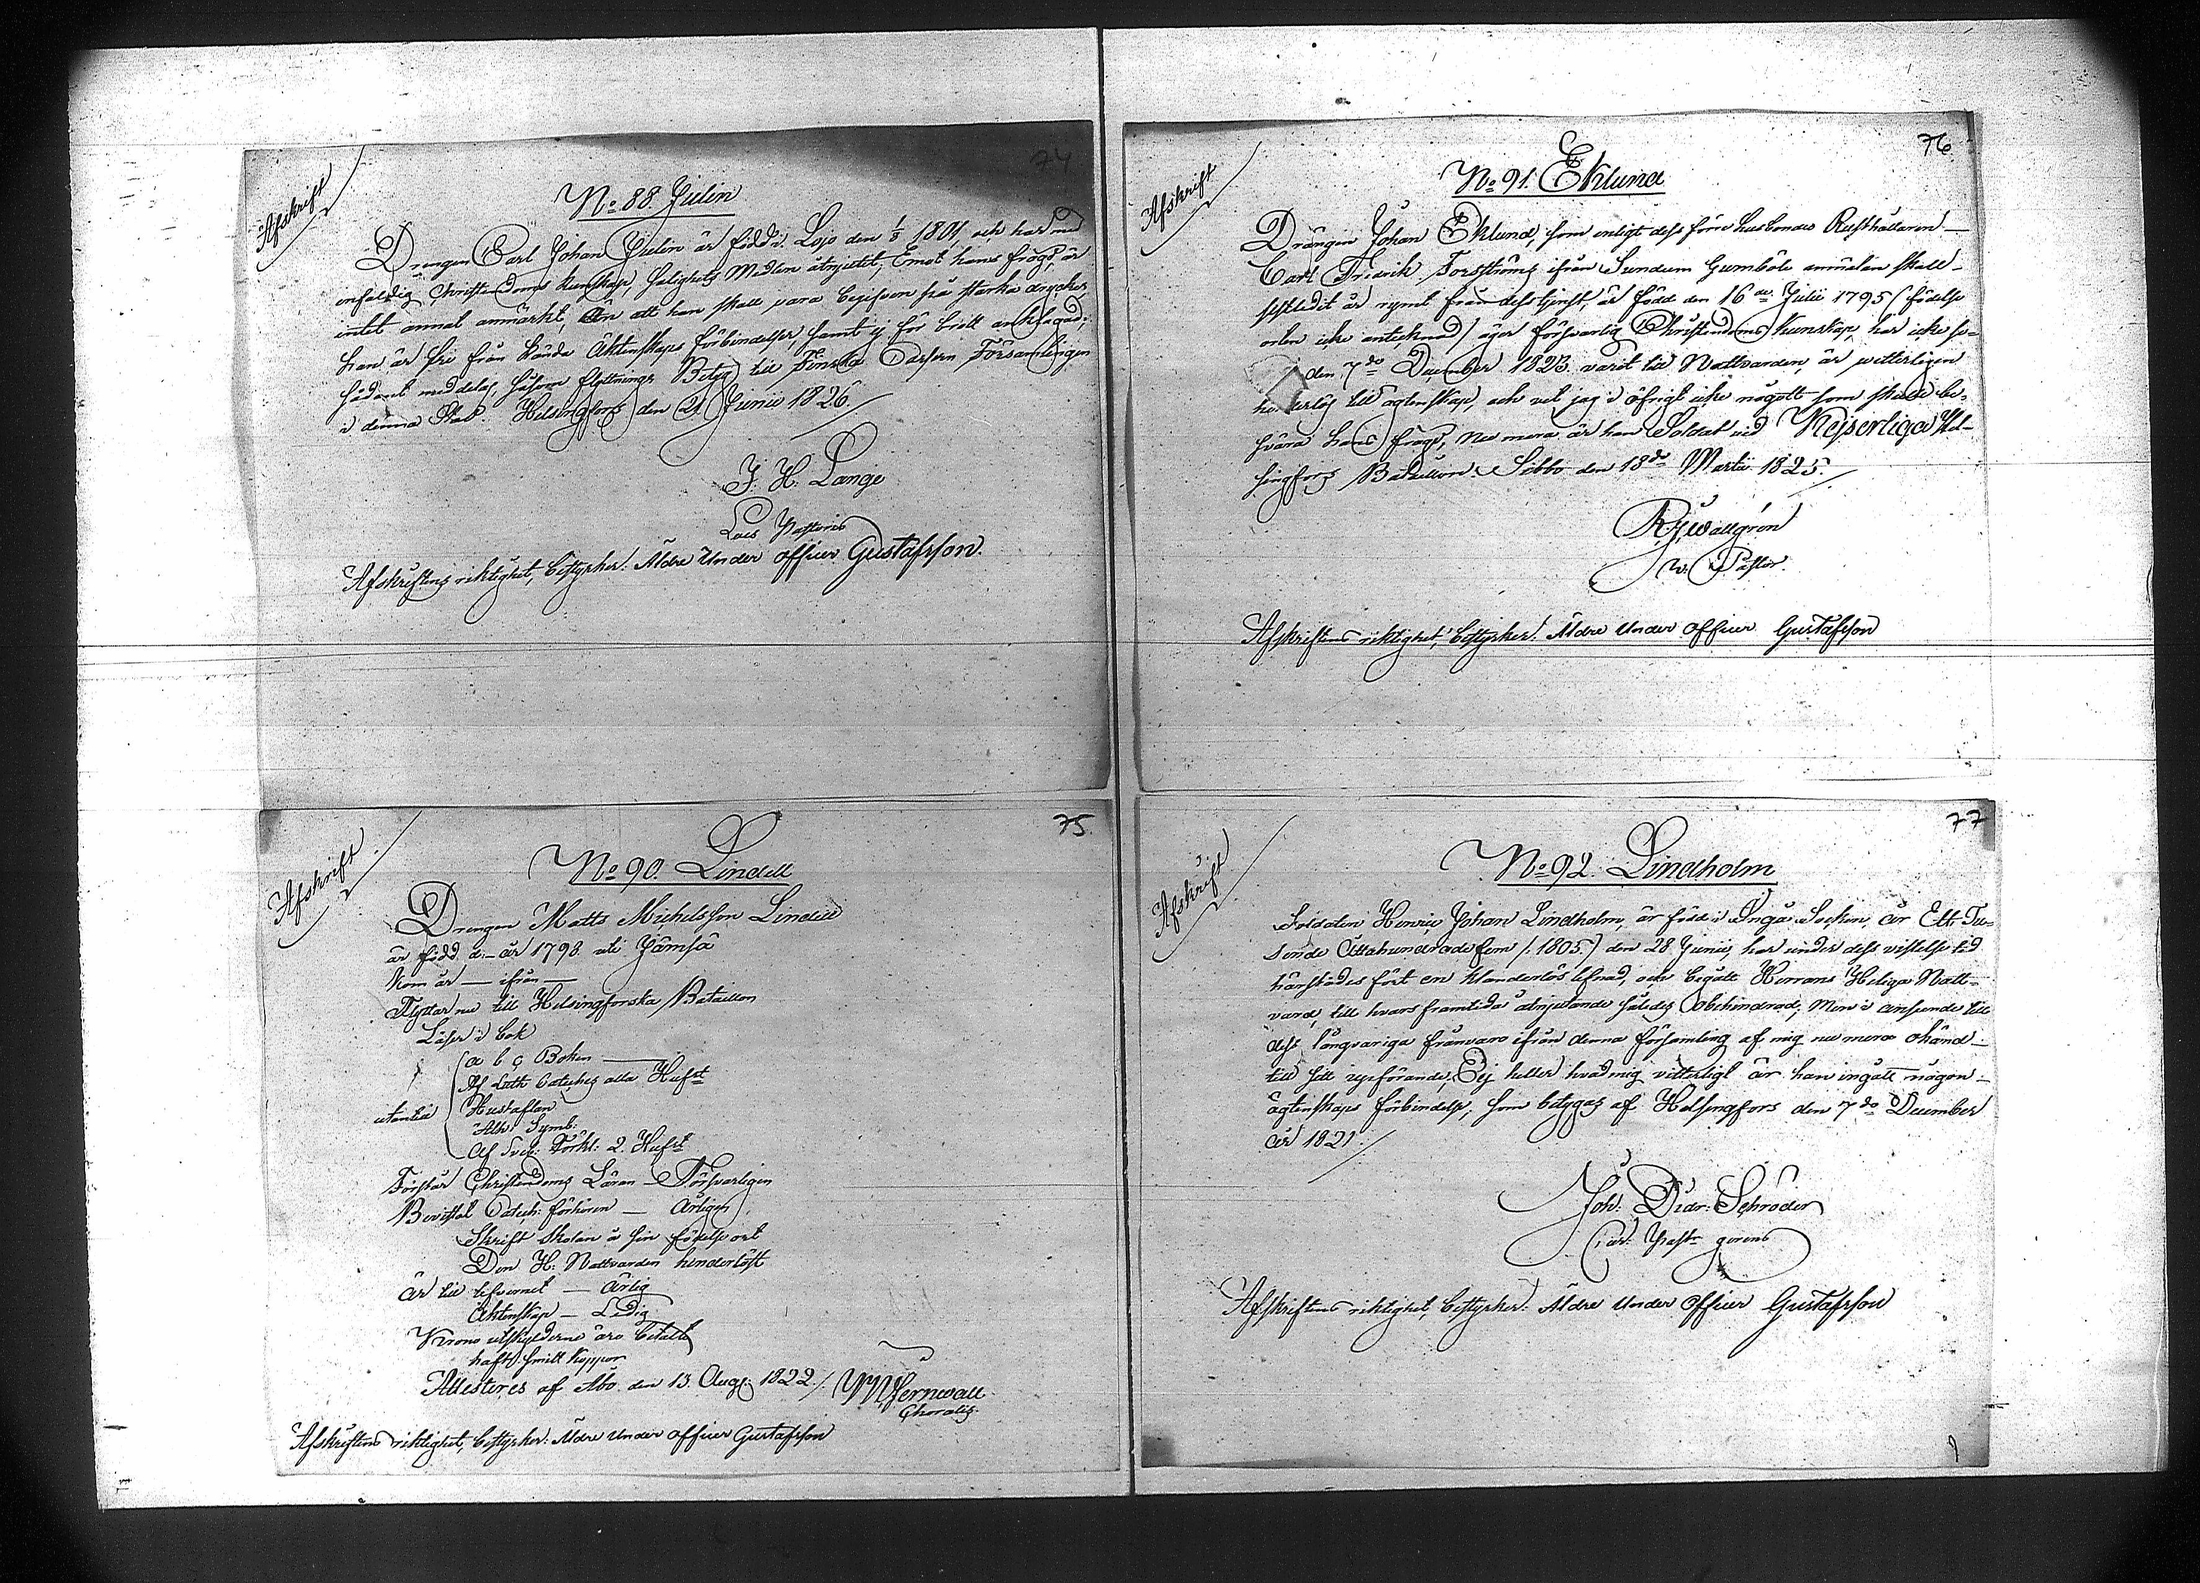 74
Afskrift
No 88. Julin
Drengen Carl Johan Julin är född i Lojo den 1/8 1801, och har med
enfaldig Christendoms kunskap, Salighets Medlen åtnjutit, Emot hans frägd, är
intet annat anmärkt, än att han skall vara begifven på starka drycker,
han är fri från kända Äktenskaps förbindelser, samt ej för brott anklagad;
sådant meddelas såsom flyttnings Betyg till Finska Församlingen
i denna Stad. Helsingfors den 21 Junii 1826.
J. H. Lange
Loco Pastoris
Afskriftens riktighet, bestyrker. Äldre Under officer Gustafsson.
75
Afskrift
No 90. Lindell
Drengen Matts Michelsson Lindell
är född d:— år 1798 uti Jämsä
kom år — ifrån —
Flyttar nu till Helsingforska Bataillon
Läser i bok
a b c Boken —
Af Luth. Cateches alla Hufst
utantill
Hustaflan
Ath: Symb.
Af Sveb: Förkl: 2. Hufst
Förstår Christendoms Läran — Försvarligen
Bevistat Catech: förhören — Årligen
Skrift Skolan å sin födelse ort
Den H. Nattvarden hinderlöst
är till lefvernet — ärlig
Äktenskap — Ledig
Krono utskylderne äro betalt
haft Smitt koppor
Attesteres af Åbo den 13. Aug: 1822.
Choralis.
Afskriftens riktighet, bestyrker: Äldre Under officer Gustafsson
76
Afskrift
No 91. Eklund
Drängen Johan Eklund, som enligt dess förre husbondes Rusthållaren —
Carl Fridrik Forsströms ifrån Sundum Gumböle anmälan skall —
sistledit år rymt från dess tjenst, är född den 16de Julii 1795 (födelse
orten icke antecknad) äger försvarlig Christendoms kunskap, har icke se-
den 7de December 1823 varit till Nattvarden, är witterligen
hinderlös till ägtenskap, och vet jag i öfrigt icke något som skulle be-
svära hans frägd, nu mera är han Soldat vid Kejserliga Hel-
singfors Bataillon. Sibbo den 18de Martii 1825.
R. J. Wallgrén
v. Pastor.
Afskriftens riktighet, bestyrker! Äldre Under officer Gustafsson
77
Afskrift
No 92. Lindholm
Soldaten Henric Johan Lindholm, är född i Ingå Socken, år Ett Tu-
sende Åttahundrade fem /:1805:/ den 28 Junii, har under dess vistelse tid
härstädes fört en klanderlös lefnad, och begått Herrans Heliga Natt-
vard, till hvars framtida åtnjutande således Obehindrad; Men i anseende till
dess långvariga frånvaro ifrån denna församling af mig nu mera okänd —
till sitt uppförande, Ej heller hvad mig vitterligt är han ingått någon —
ägtenskaps förbindelse, som betygas af Helsingfors den 7de December
år 1821.
Joh: Didr: Schröder
Past: gerens
Afskriftens riktighet, bestyrker: Äldre Under officer Gustafsson